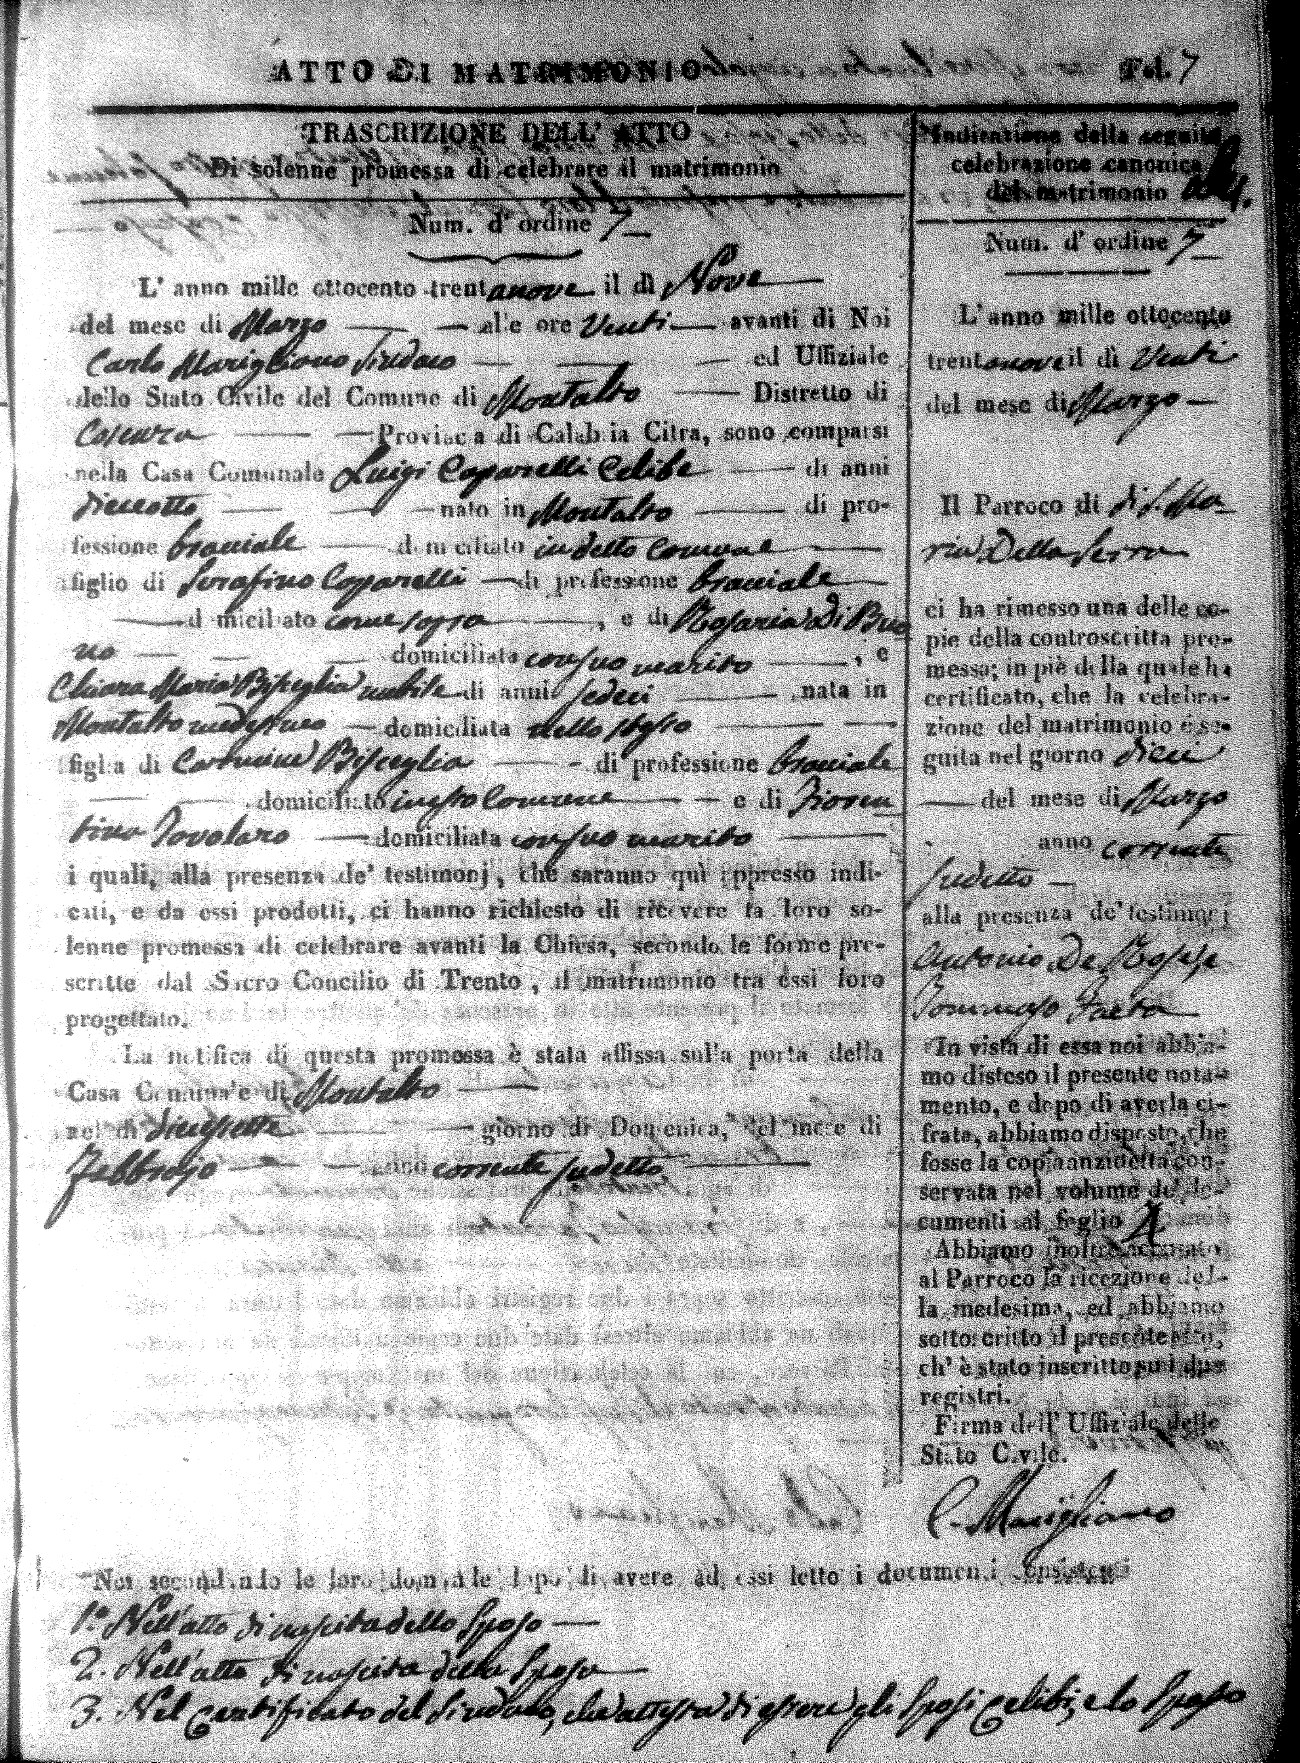 ATTO DI MATRIMONIO
Fol. 7
TRASCRIZIONE DELL' ATTO
Di solenne promessa di celebrare il matrimonio
Num. d' ordine 7
L' anno mille ottocento trentanove il dì Nove
del mese di Marzo alle ore Venti avanti di Noi
Carlo Marigliano Sindaco ed Uffiziale
dello Stato Civile del Comune di Montalto Distretto di
Cosenza Provincia di Calabria Citra, sono comparsi
nella Casa Comunale Luigi Caparelli Celibe di anni
dieciotto nato in Montalto di pro-
fessione bracciale domiciliato in detto Comune
figlio di Serafino Caparelli di professione bracciale
domiciliato come sopra, e di Rosaria Di Buo
no domiciliata con suo marito, e
Chiara Maria Bisceglia nubile di anni sedeci nata in
Montalto medesimo domiciliata nello stesso
figlia di Carmine Bisceglia di professione bracciale
domiciliato in esso Comune e di Fioren
tina Tovolaro domiciliata con suo marito
i quali, alla presenza de' testimonj, che saranno quì appresso indi-
cati, e da essi prodotti, ci hanno richiesto di ricevere la loro so-
lenne promessa di celebrare avanti la Chiesa, secondo le forme pre-
scritte dal Sacro Concilio di Trento, il matrimonio tra essi loro
progettato.
La notifica di questa promessa è stata affissa sulla porta della
Casa Comunale di Montalto
nel dì giorno di Domenica, del mese di
Febbrajo anno corrente sudetto
Indicazione della seguita
celebrazione canonica
del matrimonio
Num. d' ordine 7
L' anno mille ottocento
trentanove il dì Venti
del mese di Marzo
Il Parroco di di S. Ma
ria Della Serra
ci ha rimesso una delle co-
pie della controscritta pro-
messa; in piè della quale ha
certificato, che la celebra-
zione del matrimonio è se-
guita nel giorno dieci
del mese di Marzo
anno corrente
sudetto
alla presenza de' testimonj
Antonio De Rose, e
Tommaso Gaeta
In vista di essa noi abbia-
mo disteso il presente nota-
mento, e dopo di averla ci-
frata, abbiamo disposto, che
fosse la copia anzidetta con-
servata nel volume de' do-
cumenti al foglio
Abbiamo inoltre accusato
al Parroco la ricezione del-
la medesima, ed abbiamo
sottoscritto il presente atto,
ch' è stato inscritto su i due
registri.
Firma dell' Uffiziale dello
Stato Civile.
C. Marigliano
Noi secondando le loro domande dopo di avere ad essi letto i documenti consistenti
1.° Nell'atto di nascita dello Sposo
2. Nell'atto di nascita della Sposa
3. Nel Certificato del Sindaco, che attesta di essere gli Sposi Celibi, e lo Sposo